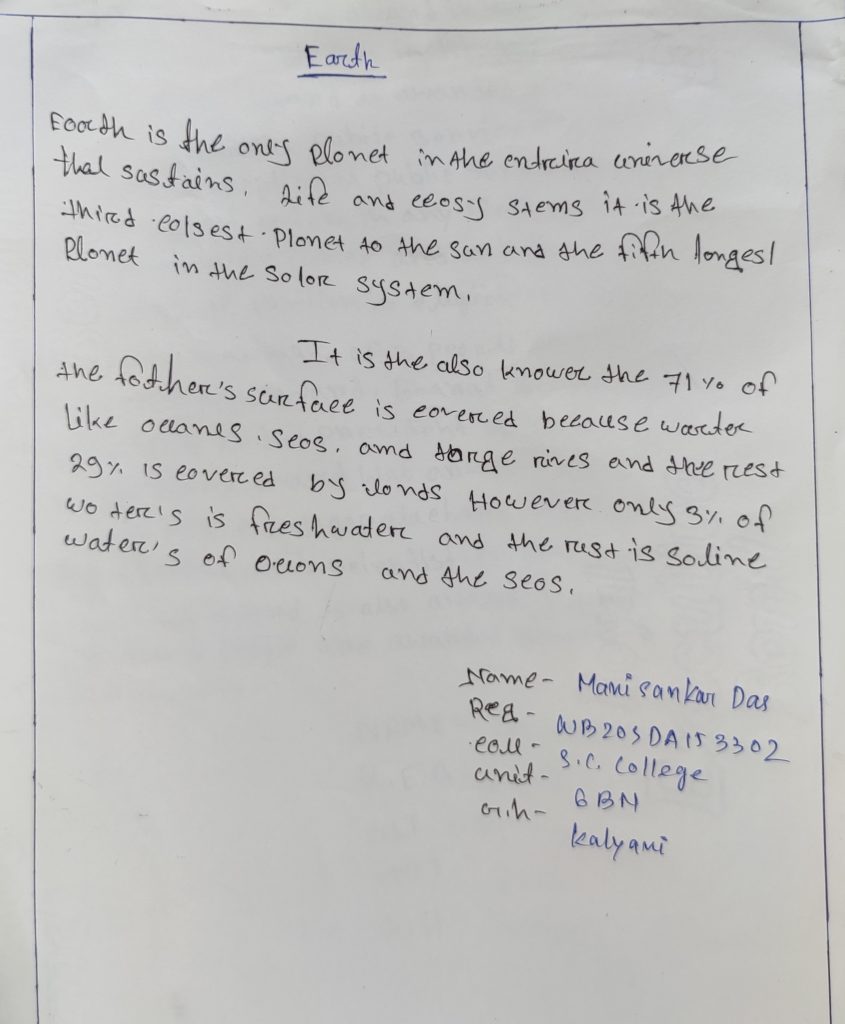 Earth
Eoorth is the only Plonet in the entraira universe
that sastains, life and eeosy stems it is the
third eolsest Planet to the sun and the fifth longest
Plonet in the Solor system.
It is the also knower the 71% of
the fother's surface is eovered beeause warter
like oceanes, seos, amd torge rives and the rest
29% is eovered by londs However only 3% of
woter's is freshwater and the rust is soline
water's of oceons and the seos.
Name - Manisankar Das
Reg - WB20SDA153302
eoll - S.C. College
unit - 6 BN
G.h - Kalyani